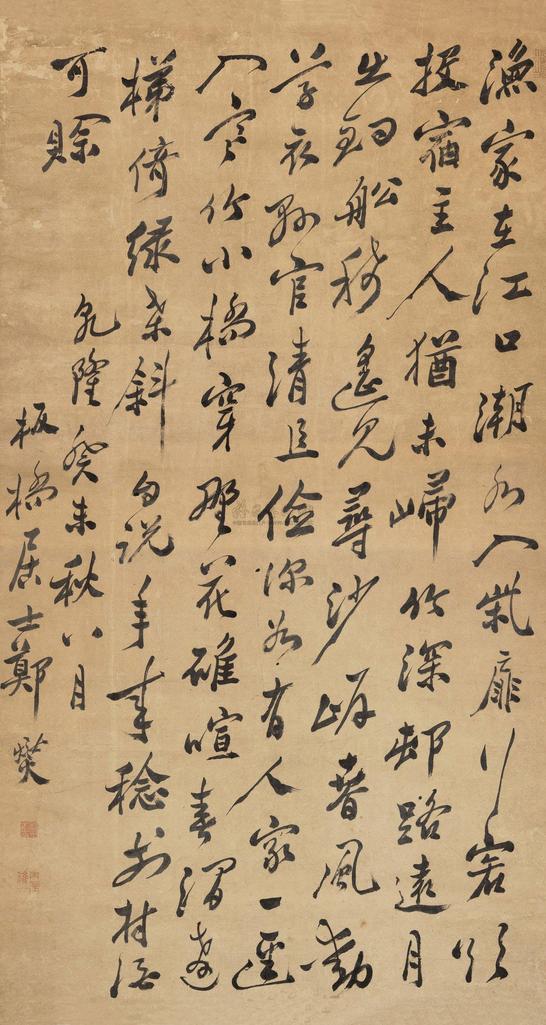 漁家在江口潮水入柴扉行客欲
投宿主人猶未歸竹深邨路遠月
出釣船稀遙見尋沙岸春風動
草衣縣官清且儉深谷有人家一逕
入寒竹小橋穿野花碓喧春澗
梯倚綠桑斜自說年來稔前村酒
可賒
乾隆癸未秋八月
板橋居士鄭燮